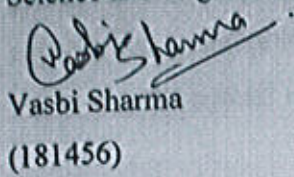 Vasbi Sharma
Vasbi Sharma
(181456)